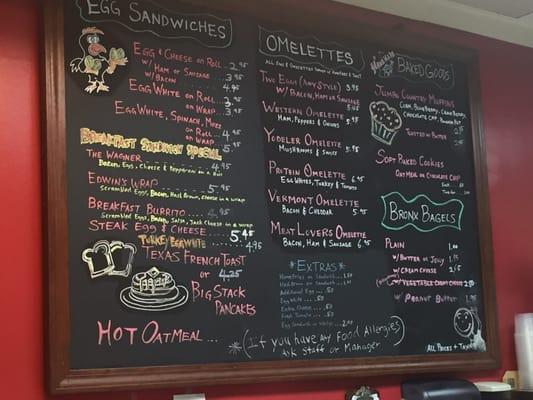 EGG SANDWICHES
EGG & CHEESE on ROLL 2.95
w/ HAM or SAUSAGE 3.95
w/ BACON 4.95
EGG WHITE on ROLL
on WRAP 3.95
EGG WHITE, SPINACH,
on ROLL 4
on WRAP 5
BREAKFAST SANDWICH SPECIAL
THE WAGNER 4.95
BACON, EGG, CHEESE & PEPPERONI on a ROLL
EDWIN'S WRAP 5.95
SCRAMBLED EGGS, BACON, HASH BROWN, CHEESE in a WRAP
BREAKFAST BURRITO 4.95
SCRAMBLED EGGS, BACON, SALSA, JACK CHEESE in a WRAP
STEAK EGG & CHEESE 5.45
TURKEY EGGWHITE 4.95
TEXAS FRENCH TOAST
or 4.25
BIG STACK
PANCAKES
HOT OATMEAL ...
OMELETTES
TWO EGGS (ANY STYLE) 3.95
w/ BACON, HAM or SAUSAGE 5.45
WESTERN OMELETTE
HAM, PEPPERS & ONIONS 5.95
YODELER OMELETTE
MUSHROOMS & SWISS 5.95
PROTEIN OMELETTE 6.95
EGG WHITES, TURKEY & TOMATOES
VERMONT OMELETTE
BACON & CHEDDAR 5.95
MEAT LOVERS OMELETTE
BACON, HAM & SAUSAGE 6.95
*EXTRAS*
HOMEFRIES or SANDWICH 1.50
HASH BROWN on SANDWICH 1.00
ADDITIONAL EGG .50
EGG WHITE .50
EXTRA CHEESE .50
FRESH TOMATO .50
EGG SANDWICH on WRAP 2.00
* (IF YOU HAVE ANY FOOD ALLERGIES)
ASK STAFF or MANAGER
BAKED GOODS
JUMBO COUNTRY MUFFINS
CORN, BLUEBERRY, CRANBERRY
CHOCOLATE CHIP,
TOASTED w/ BUTTER
SOFT BAKED COOKIES
OATMEAL or CHOCOLATE CHIP
EACH
TWO FOR
BRONX BAGELS
PLAIN 1.00
w/ BUTTER or JELLY 1.75
w/ CREAM CHEESE 2.25
w/ VEGETABLE CREAM CHEESE 2.50
w/ PEANUT BUTTER
ALL PRICES + TAX